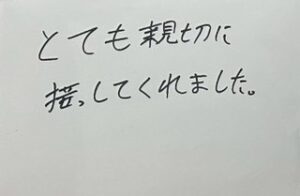 とても親切に
接してくれました。